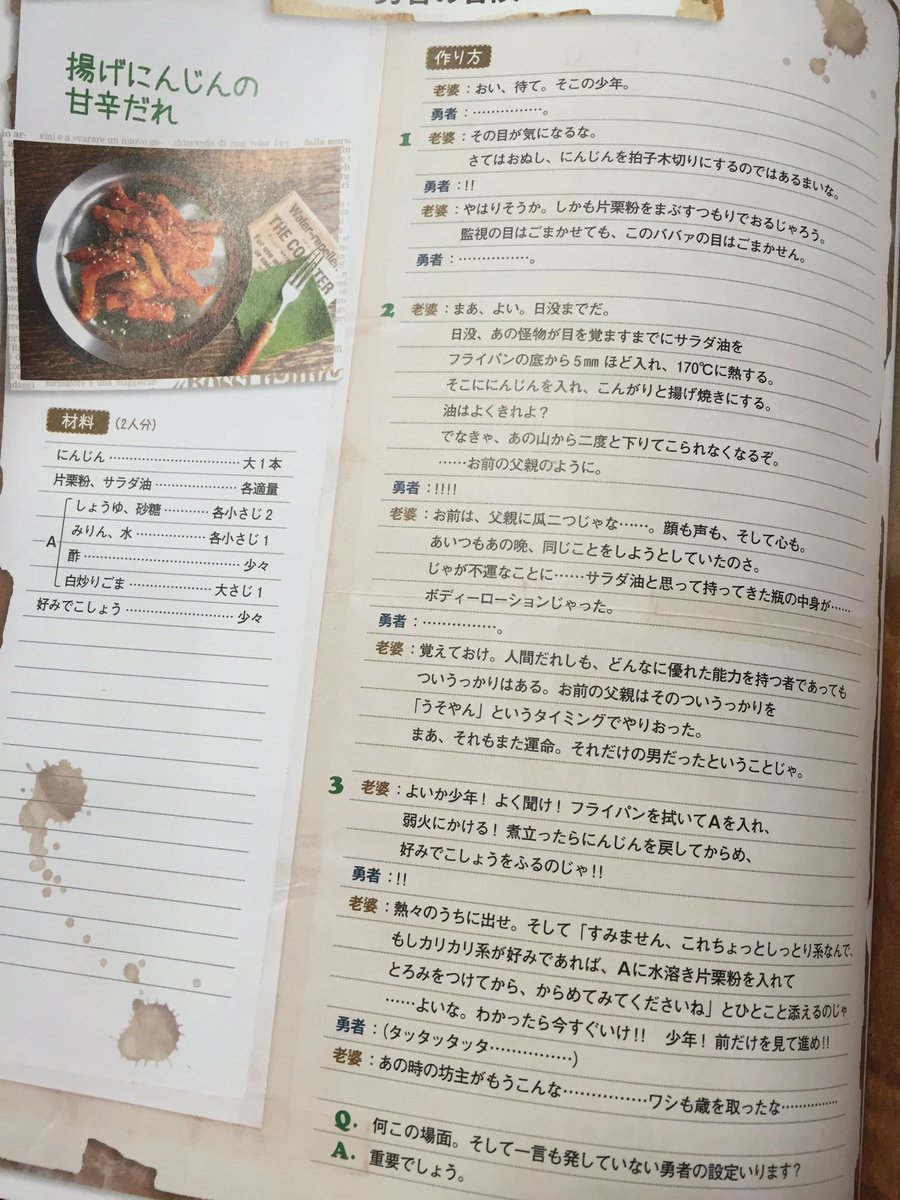 揚げにんじんの
甘辛だれ
Water-repeller
THE COASTER
材料 (2人分)
にんじん……………………………大1本
片栗粉、サラダ油…………………各適量
A
しょうゆ、砂糖…………各小さじ2
みりん、水………………各小さじ1
酢……………………………………少々
白炒りごま…………………大さじ1
好みでこしょう…………………………少々
作り方
老婆：おい、待て。そこの少年。
勇者：……………。
1 老婆：その目が気になるな。
さてはおぬし、にんじんを拍子木切りにするのではあるまいな。
勇者：!!
老婆：やはりそうか。しかも片栗粉をまぶすつもりでおるじゃろう。
監視の目はごまかせても、このババァの目はごまかせん。
勇者：……………。
2 老婆：まあ、よい。日没までだ。
日没、あの怪物が目を覚ますまでにサラダ油を
フライパンの底から5㎜ほど入れ、170℃に熱する。
そこににんじんを入れ、こんがりと揚げ焼きにする。
油はよくきれよ？
でなきゃ、あの山から二度と下りてこられなくなるぞ。
……お前の父親のように。
勇者：!!!!
老婆：お前は、父親に瓜二つじゃな……。顔も声も、そして心も。
あいつもあの晩、同じことをしようとしていたのさ。
じゃが不運なことに……サラダ油と思って持ってきた瓶の中身が……
ボディーローションじゃった。
勇者：……………。
老婆：覚えておけ。人間だれしも、どんなに優れた能力を持つ者であっても
ついうっかりはある。お前の父親はそのついうっかりを
「うそやん」というタイミングでやりおった。
まあ、それもまた運命。それだけの男だったということじゃ。
3 老婆：よいか少年！よく聞け！フライパンを拭いてAを入れ、
弱火にかける！煮立ったらにんじんを戻してからめ、
好みでこしょうをふるのじゃ!!
勇者：!!
老婆：熱々のうちに出せ。そして「すみません、これちょっとしっとり系なんで、
もしカリカリ系が好みであれば、Aに水溶き片栗粉を入れて
とろみをつけてから、からめてみてくださいね」とひとこと添えるのじゃ
……よいな。わかったら今すぐいけ!! 少年！前だけを見て進め!!
勇者：(タッタッタッタ……………)
老婆：あの時の坊主がもうこんな……………ワシも歳を取ったな……………
Q. 何この場面。そして一言も発していない勇者の設定いります？
A. 重要でしょう。